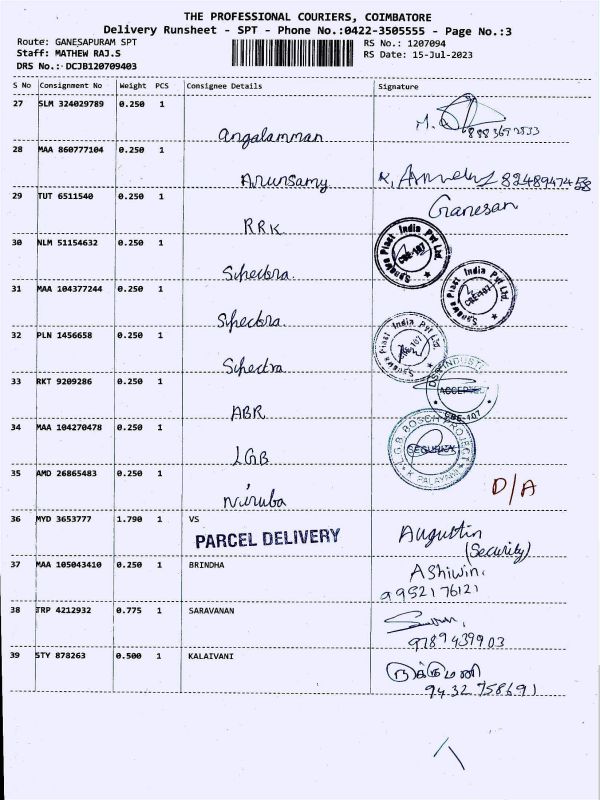 THE PROFESSIONAL COURIERS, COIMBATORE
Delivery Runsheet - SPT - Phone No.:0422-3505555 - Page No.:3
Route: GANESAPURAM SPT
RS No.: 1207094
Staff: MATHEW RAJ.S
RS Date: 15-Jul-2023
DRS No.: DCJB120709403
S No Consignment No Weight PCS Consignee Details Signature
27 SLM 324029789 0.250 1 Angalamman
28 MAA 860777104 0.250 1 Arunsamy 8248947458
29 TUT 6511540 0.250 1 RRK Ganesan
30 NLM 51154632 0.250 1 Spectra
31 MAA 104377244 0.250 1 Spectra
32 PLN 1456658 0.250 1 Spectra
33 RKT 9209286 0.250 1 ABR ACCEPTED CBE-107
34 MAA 104270478 0.250 1 LGB L.G.B BOSCH PROJECT SECURITY K PALAYAM
35 AMD 26865483 0.250 1 Niruba D/A
36 MYD 3653777 1.790 1 VS Augustin
PARCEL DELIVERY (Security)
37 MAA 105043410 0.250 1 BRINDHA Ashiwin.
9952176121
38 TRP 4212932 0.775 1 SARAVANAN
9789439903
39 STY 878263 0.500 1 KALAIVANI
9432758691